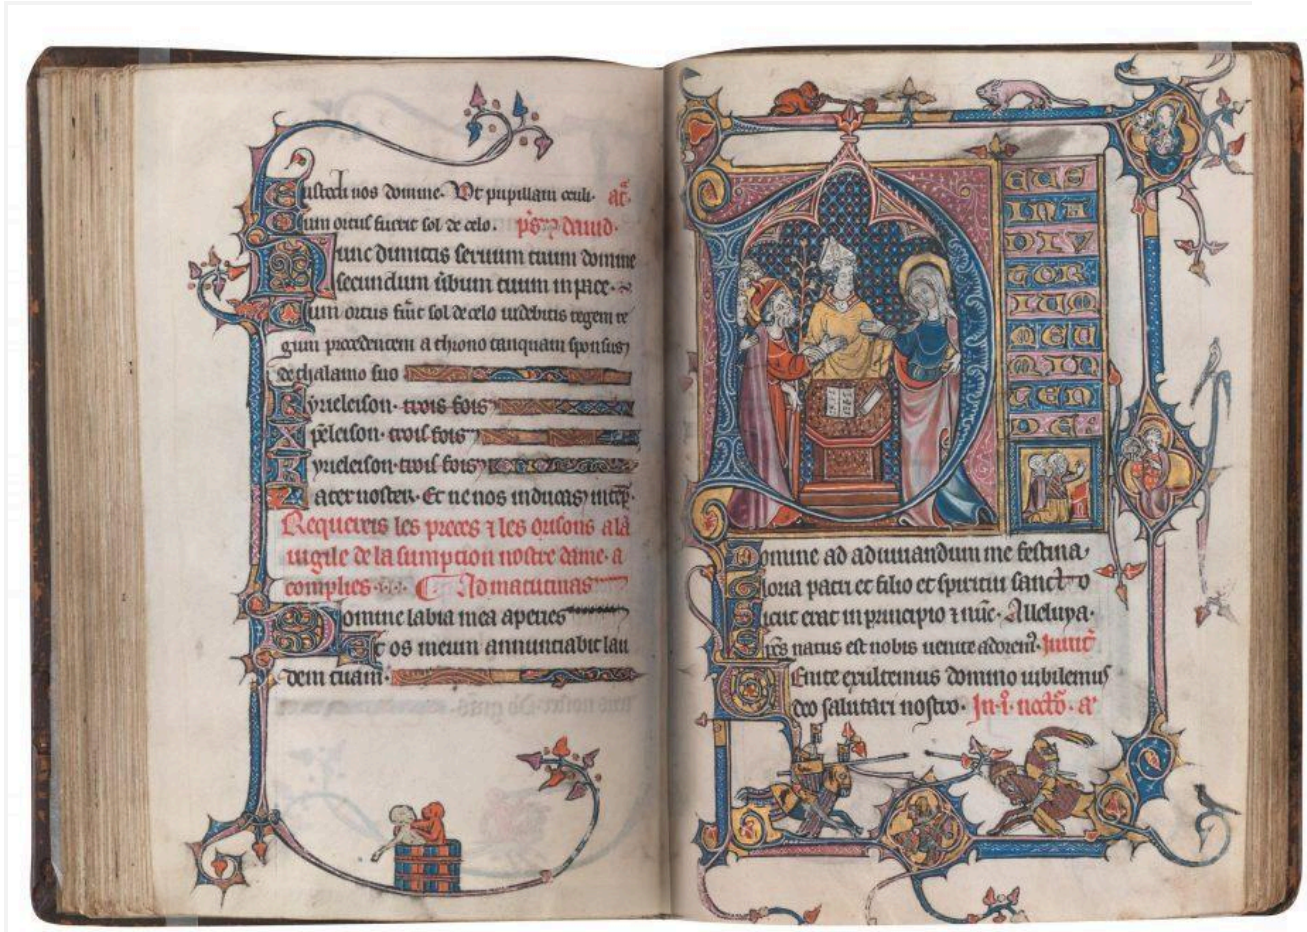 Custodi nos domine. Vt pupillam oculi. añ.
Cum ortus fuerit sol de celo. ps dauid.
Nunc dimittis seruum tuum domine
secundum ũbum tuum in pace.
Cum ortus fũit sol de celo uidebitis regem re
gum procedentem a throno tanquam sponsus
de thalamo suo
Kyrieleison. trois fois
Xp̃eleison. trois fois
Kyrieleison. trois fois
Pater noster. Et ne nos inducas
Requereis les preces ⁊ les orisons a la
uigile de la sumption nostre dame. a
complies. Ad matutinas
Domine labia mea aperies
Et os meum annunciabit lau
dem tuam.
DEUS
IN A
DIV
TOR
IUM
MEU
M IN
TEN
DE
Domine ad adiuuandum me festina
Gloria patri et filio et spiritui sancto
Sicut erat in principio ⁊ nũc. Alleluya.
Xp̃s natus est nobis uenite adorem9. Inuit
Venite exultemus domino iubilemus
deo salutari nostro. In .i. noct̃o. añ